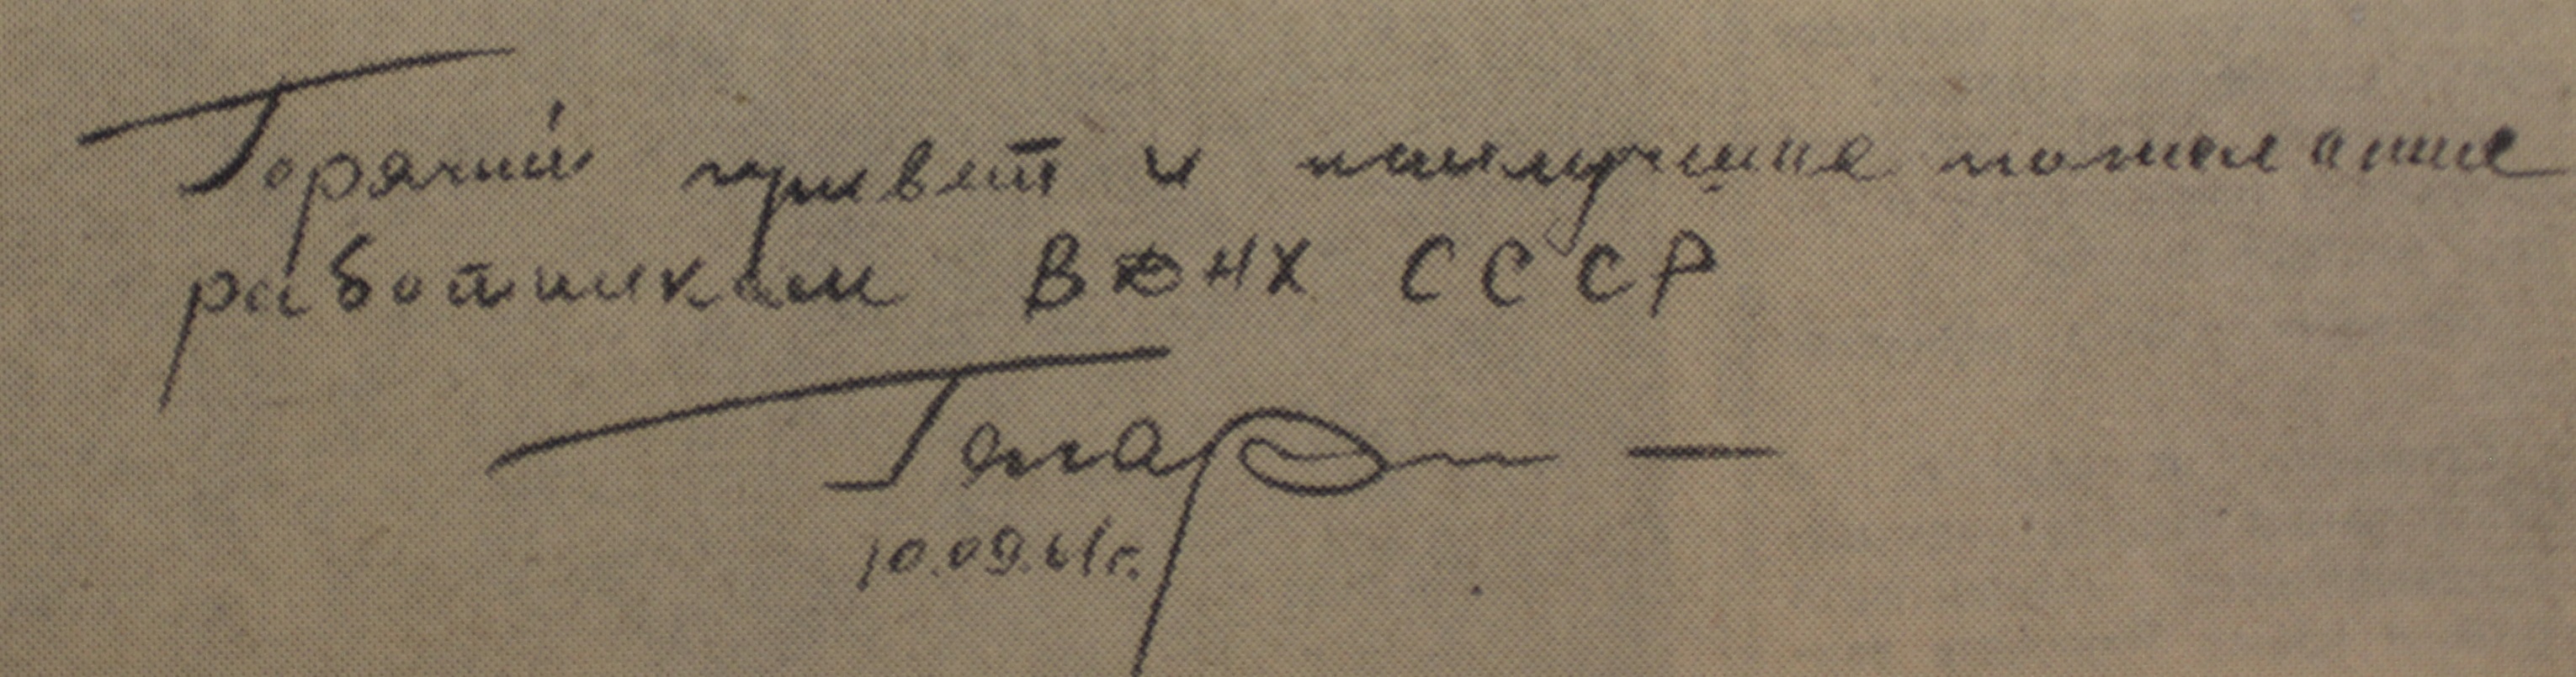 Горячий привет и наилучшие пожелание
работникам ВДНХ СССР
Гагарин
10.09.61г.